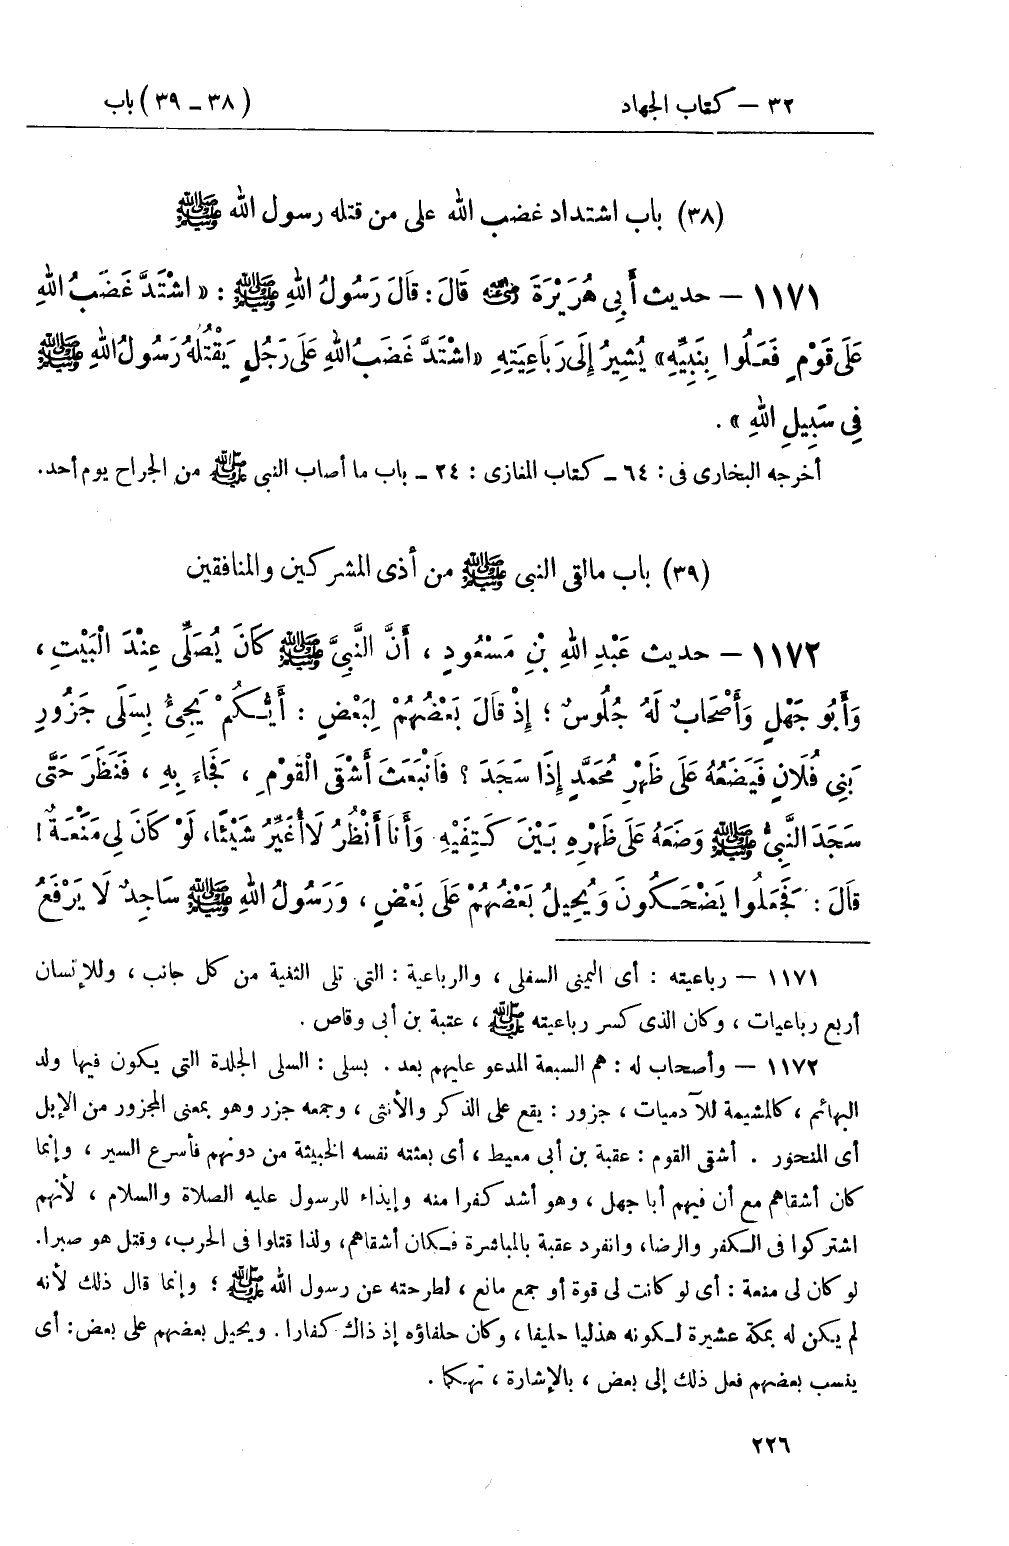 ٣٢ – كتاب الجهاد (٣٨ – ٣٩) باب
(٣٨) باب اشتداد غضب الله على من قتله رسول الله ﷺ
١١٧١ – حديث أَبِى هُرَيْرَةَ رضي الله عنه قَالَ: قَالَ رَسُولُ اللهِ ﷺ : « اشْتَدَّ غَضَبُ اللهِ
عَلَى قَوْمٍ فَعَلُوا بِنَبِيِّهِ» يُشِيرُ إِلَى رَبَاعِيَتِهِ «اشْتَدَّ غَضَبُ اللهِ عَلَى رَجُلٍ يَقْتُلُهُ رَسُولُ اللهِ ﷺ
فِى سَبِيلِ اللهِ » .
أخرجه البخارى فى : ٦٤ – كتاب المغازى : ٢٤ – باب ما أصاب النبى ﷺ من الجراح يوم أحد.
(٣٩) باب مالقى النبى ﷺ من أذى المشركين والمنافقين
١١٧٢ – حديث عَبْدِ اللهِ بْنِ مَسْعُودٍ ، أَنَّ النَّبِىَّ ﷺ كَانَ يُصَلِّى عِنْدَ الْبَيْتِ ،
وَأَبُو جَهْلٍ وَأَصْحَابٌ لَهُ جُلُوسٌ ؛ إِذْ قَالَ بَعْضُهُمْ لِبَعْضٍ : أَيُّكُمْ يَجِئُ بِسَلَى جَزُورِ
بَنِى فُلَانٍ فَيَضَعُهُ عَلَى ظَهْرِ مُحَمَّدٍ إِذَا سَجَدَ ؟ فَانْبَعَثَ أَشْقَى الْقَوْمِ ، فَجَاءَ بِهِ ، فَنَظَرَ حَتَّى
سَجَدَ النَّبِىُّ ﷺ وَضَعَهُ عَلَى ظَهْرِهِ بَيْنَ كَتِفَيْهِ وَأَنَا أَنْظُرُ لَا أُغَيِّرُ شَيْئًا، لَوْ كَانَ لِى مَنْعَةٌ !
قَالَ : فَجَعَلُوا يَضْحَكُونَ وَيُحِيلُ بَعْضُهُمْ عَلَى بَعْضٍ ، وَرَسُولُ اللهِ ﷺ سَاجِدٌ لَا يَرْفَعُ
١١٧١ – رباعيته : أى اليمنى السفلى ، والرباعية : التى تلى الثنية من كل جانب ، وللإنسان
أربع رباعيات ، وكان الذى كسر رباعيته ﷺ ، عتبة بن أبى وقاص .
١١٧٢ – وأصحاب له : هم السبعة المدعو عليهم بعد . بسلى : السلى الجلدة التى يكون فيها ولد
البهائم ، كالمشيمة للآدميات ، جزور : يقع على الذكر والأنثى ، وجمعه جزر وهو بمعنى المجزور من الإبل
أى المنحور . أشقى القوم : عقبة بن أبى معيط ، أى بعثته نفسه الخبيثة من دونهم فأسرع السير ، وإنما
كان أشقاهم مع أن فيهم أبا جهل ، وهو أشد كفرا منه وإيذاء للرسول عليه الصلاة والسلام ، لأنهم
اشتركوا فى الكفر والرضا، وانفرد عقبة بالمباشرة فكان أشقاهم، ولذا قتلوا فى الحرب، وقتل هو صبرا.
لو كان لى منعة : أى لو كانت لى قوة أو جمع مانع ، لطرحته عن رسول الله ﷺ ؛ وإنما قال ذلك لأنه
لم يكن له بمكة عشيرة لكونه هذليا حليفا ، وكان حلفاؤه إذ ذاك كفارا . ويحيل بعضهم على بعض: أى
ينسب بعضهم فعل ذلك إلى بعض ، بالإشارة ، تهكما .
٢٢٦